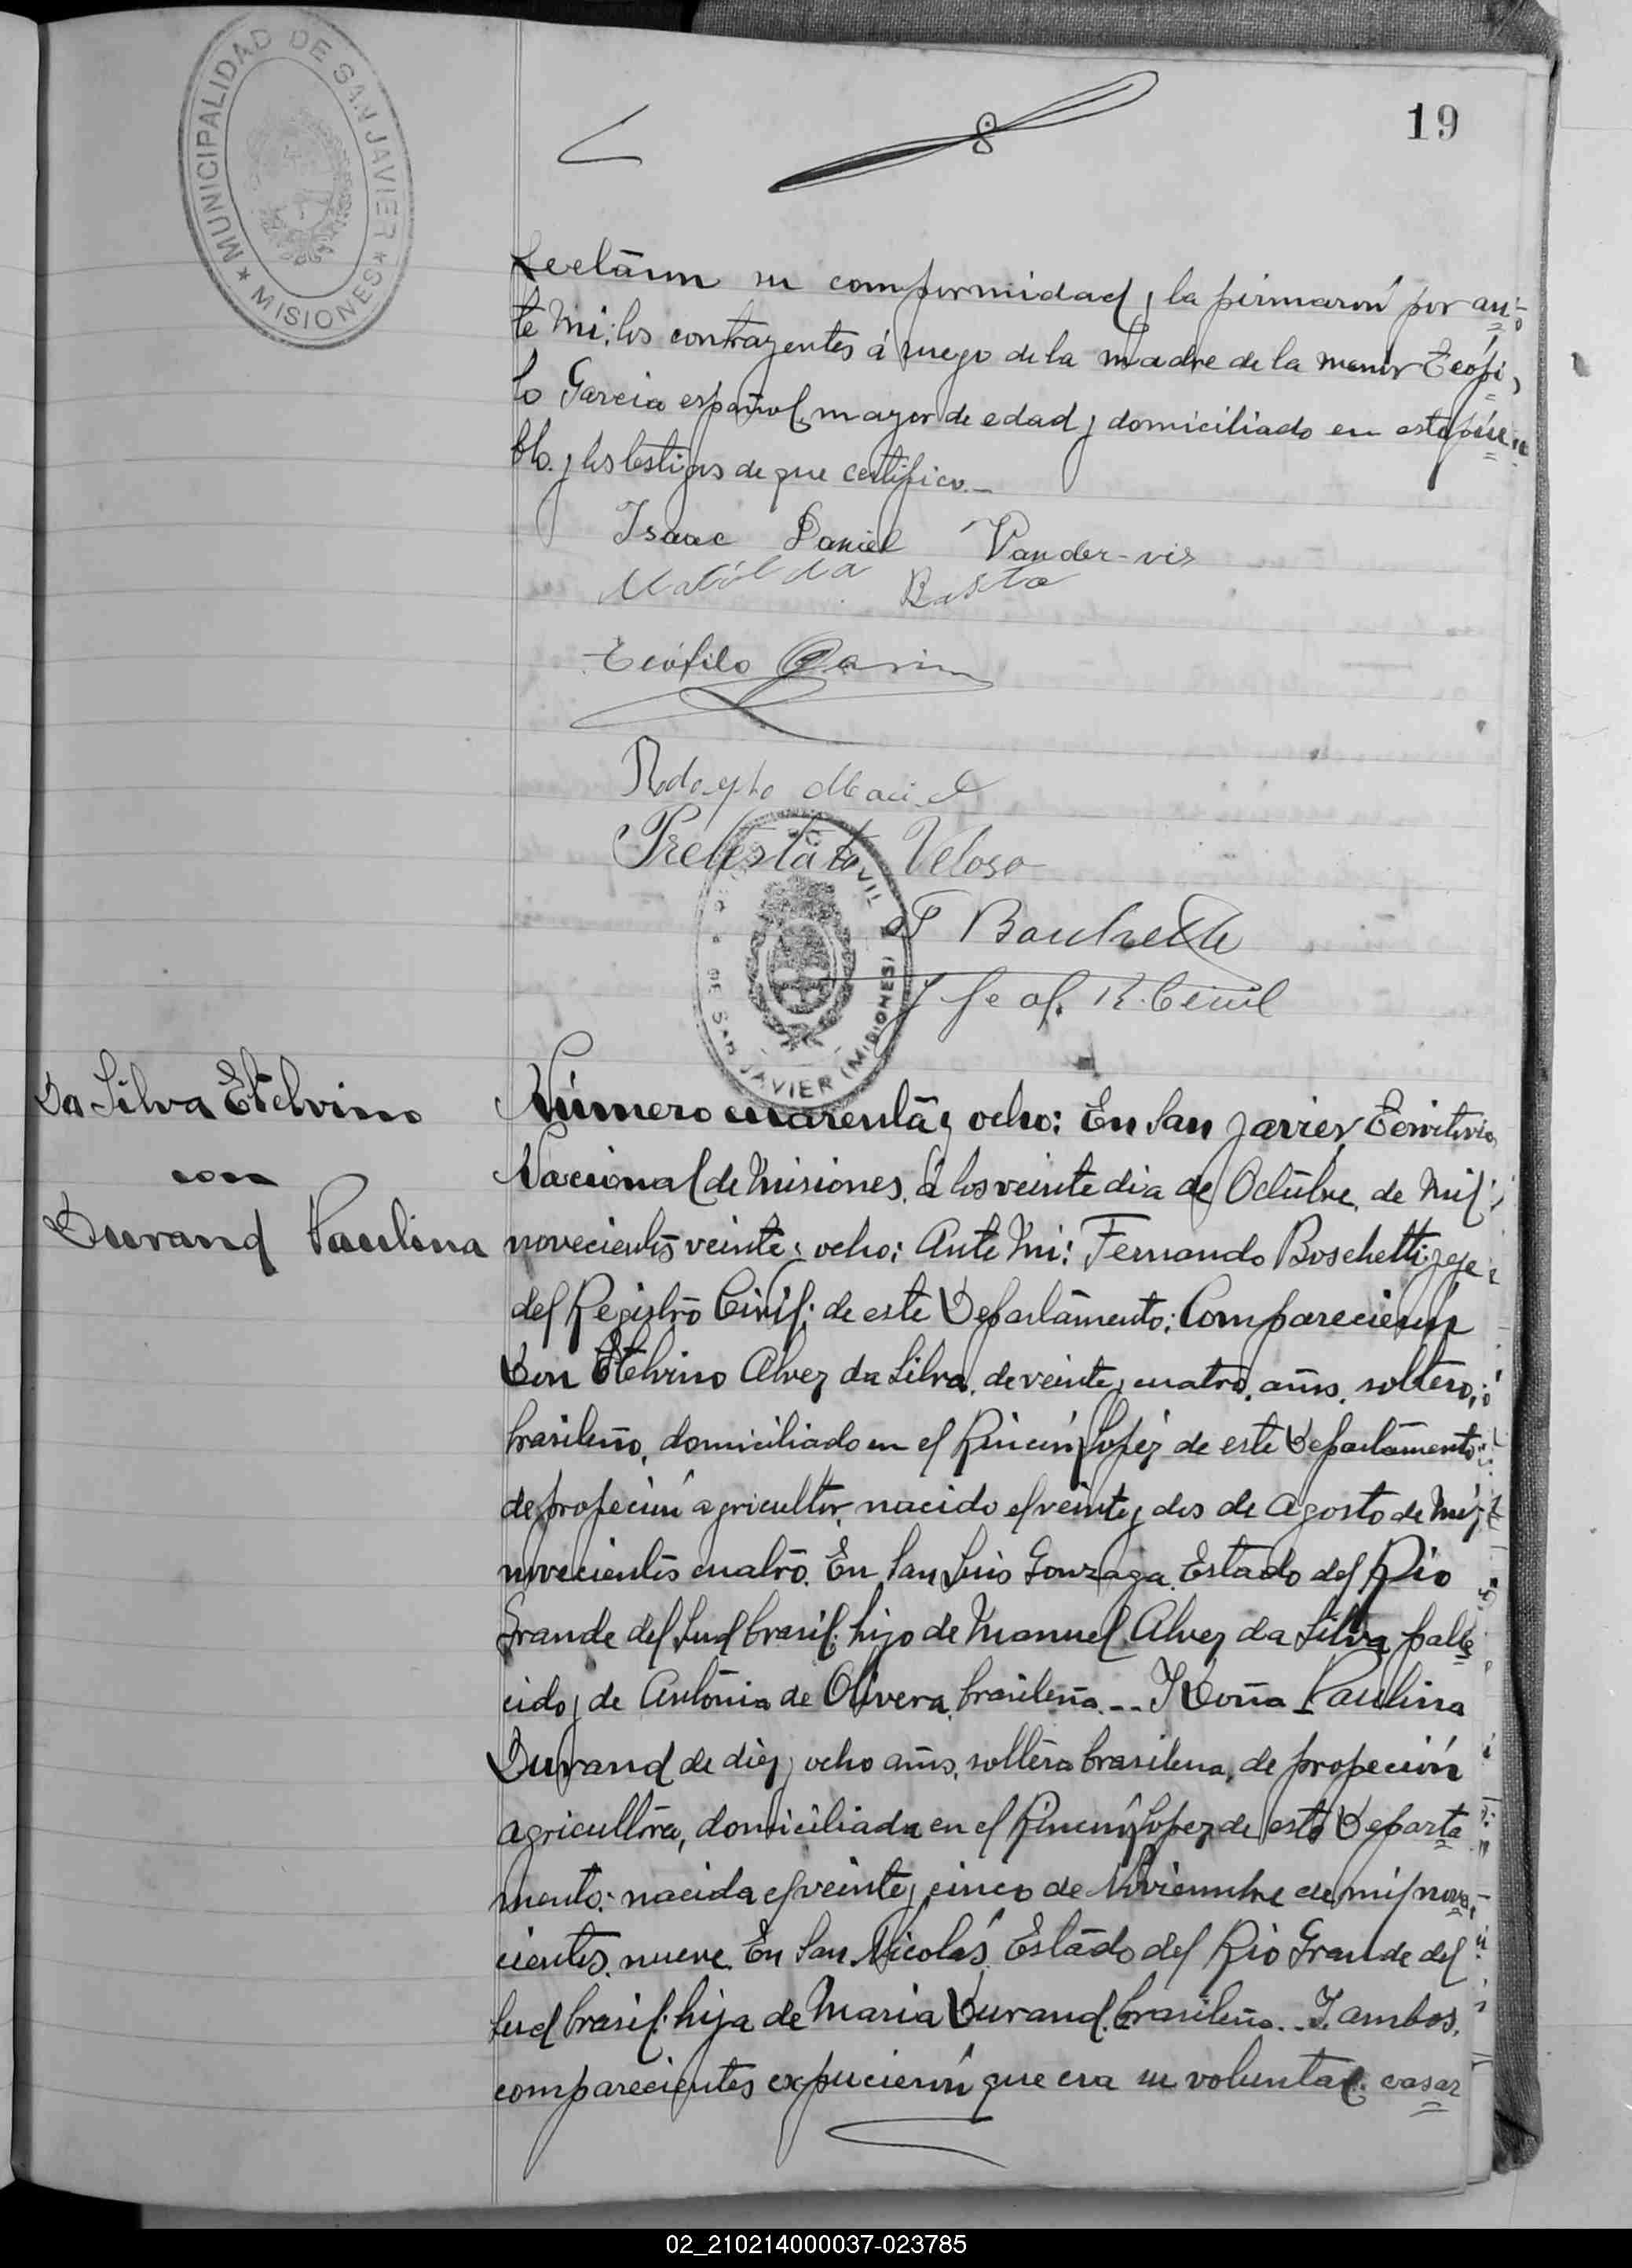 MUNICIPALIDAD DE SAN JAVIER
★ MISIONES ★
19
8
su comformidad y la firmarón por an
te Mi: los contrayentes á ruego de la madre de la menor Teófi
lo Garcia español, mayor de edad y domiciliado en este púe
blo. y los testigos de que certifico.
Isaac Daniel Vander-vis
Matilda Basto
Teófilo Garcia
Rodolpho Maciel
Pretestato Veloso
F Boschetti
Jefe of. R. Civil
DE SAN JAVIER (MISIONES)
Da Silva Etelvino
con
Durand Paulina
Número cuarenta y ocho: En San Javier, Territorio
Nacional de Misiones, á los veinte dia de Octubre, de Mil
novecientos veinte y ocho: Ante Mi: Fernando Boschetti: jefe
del Registro Civil: de este Departamento: Comparecierón
Don Etelvino Alvez da Silva, de veinte y cuatro, años, soltero,
brasileño, domiciliado en el Rincón Lopéz de este Departamento
de profeción agricultor, nacido el veinte y dos de Agosto de Mil
novecientos cuatro. En San Luis Gonzaga. Estado del Rio
Grande del Sud brasil: hijo de Manuel Alvez da Silva falle
cido y de Antonia de Olivera, brasileña. -- Y Doña Paulina
Durand de diez y ocho años, soltera brasilena, de profeción
agricultora, domiciliada en el Rincón Lopez de este Departa
mento: nacida el veinte y cinco de Noviembre de mil nove
cientos, nueve. En San Nicolás, Estado del Rio Grande del
Sud brasil: hija de Maria Durand. brasileña. -- Y ambos,
comparecientes expucierón que era su voluntad: casar
02_210214000037-023785